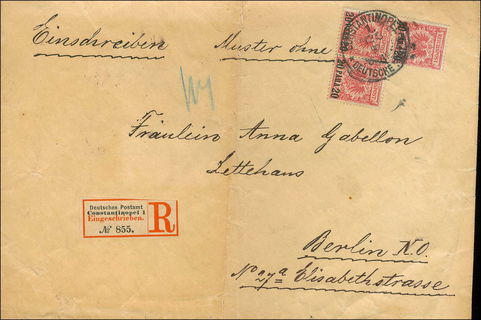 Einschreiben Muster ohne
CONSTANTINOPEL
DEUTSCHE
20 PARA 20
Fräulein Anna Gabellon
Lettehaus
Deutsches Postamt
Constantinopel 1
Eingeschrieben.
№ 855.
R
Berlin N.O.
No 27a Elisabethstrasse